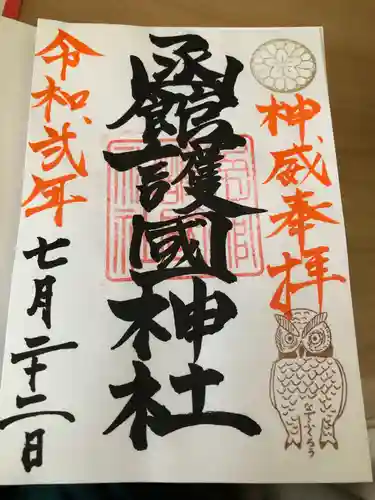 神威奉拝
函館護國神社
令和弐年
七月二十二日
なでふくろう